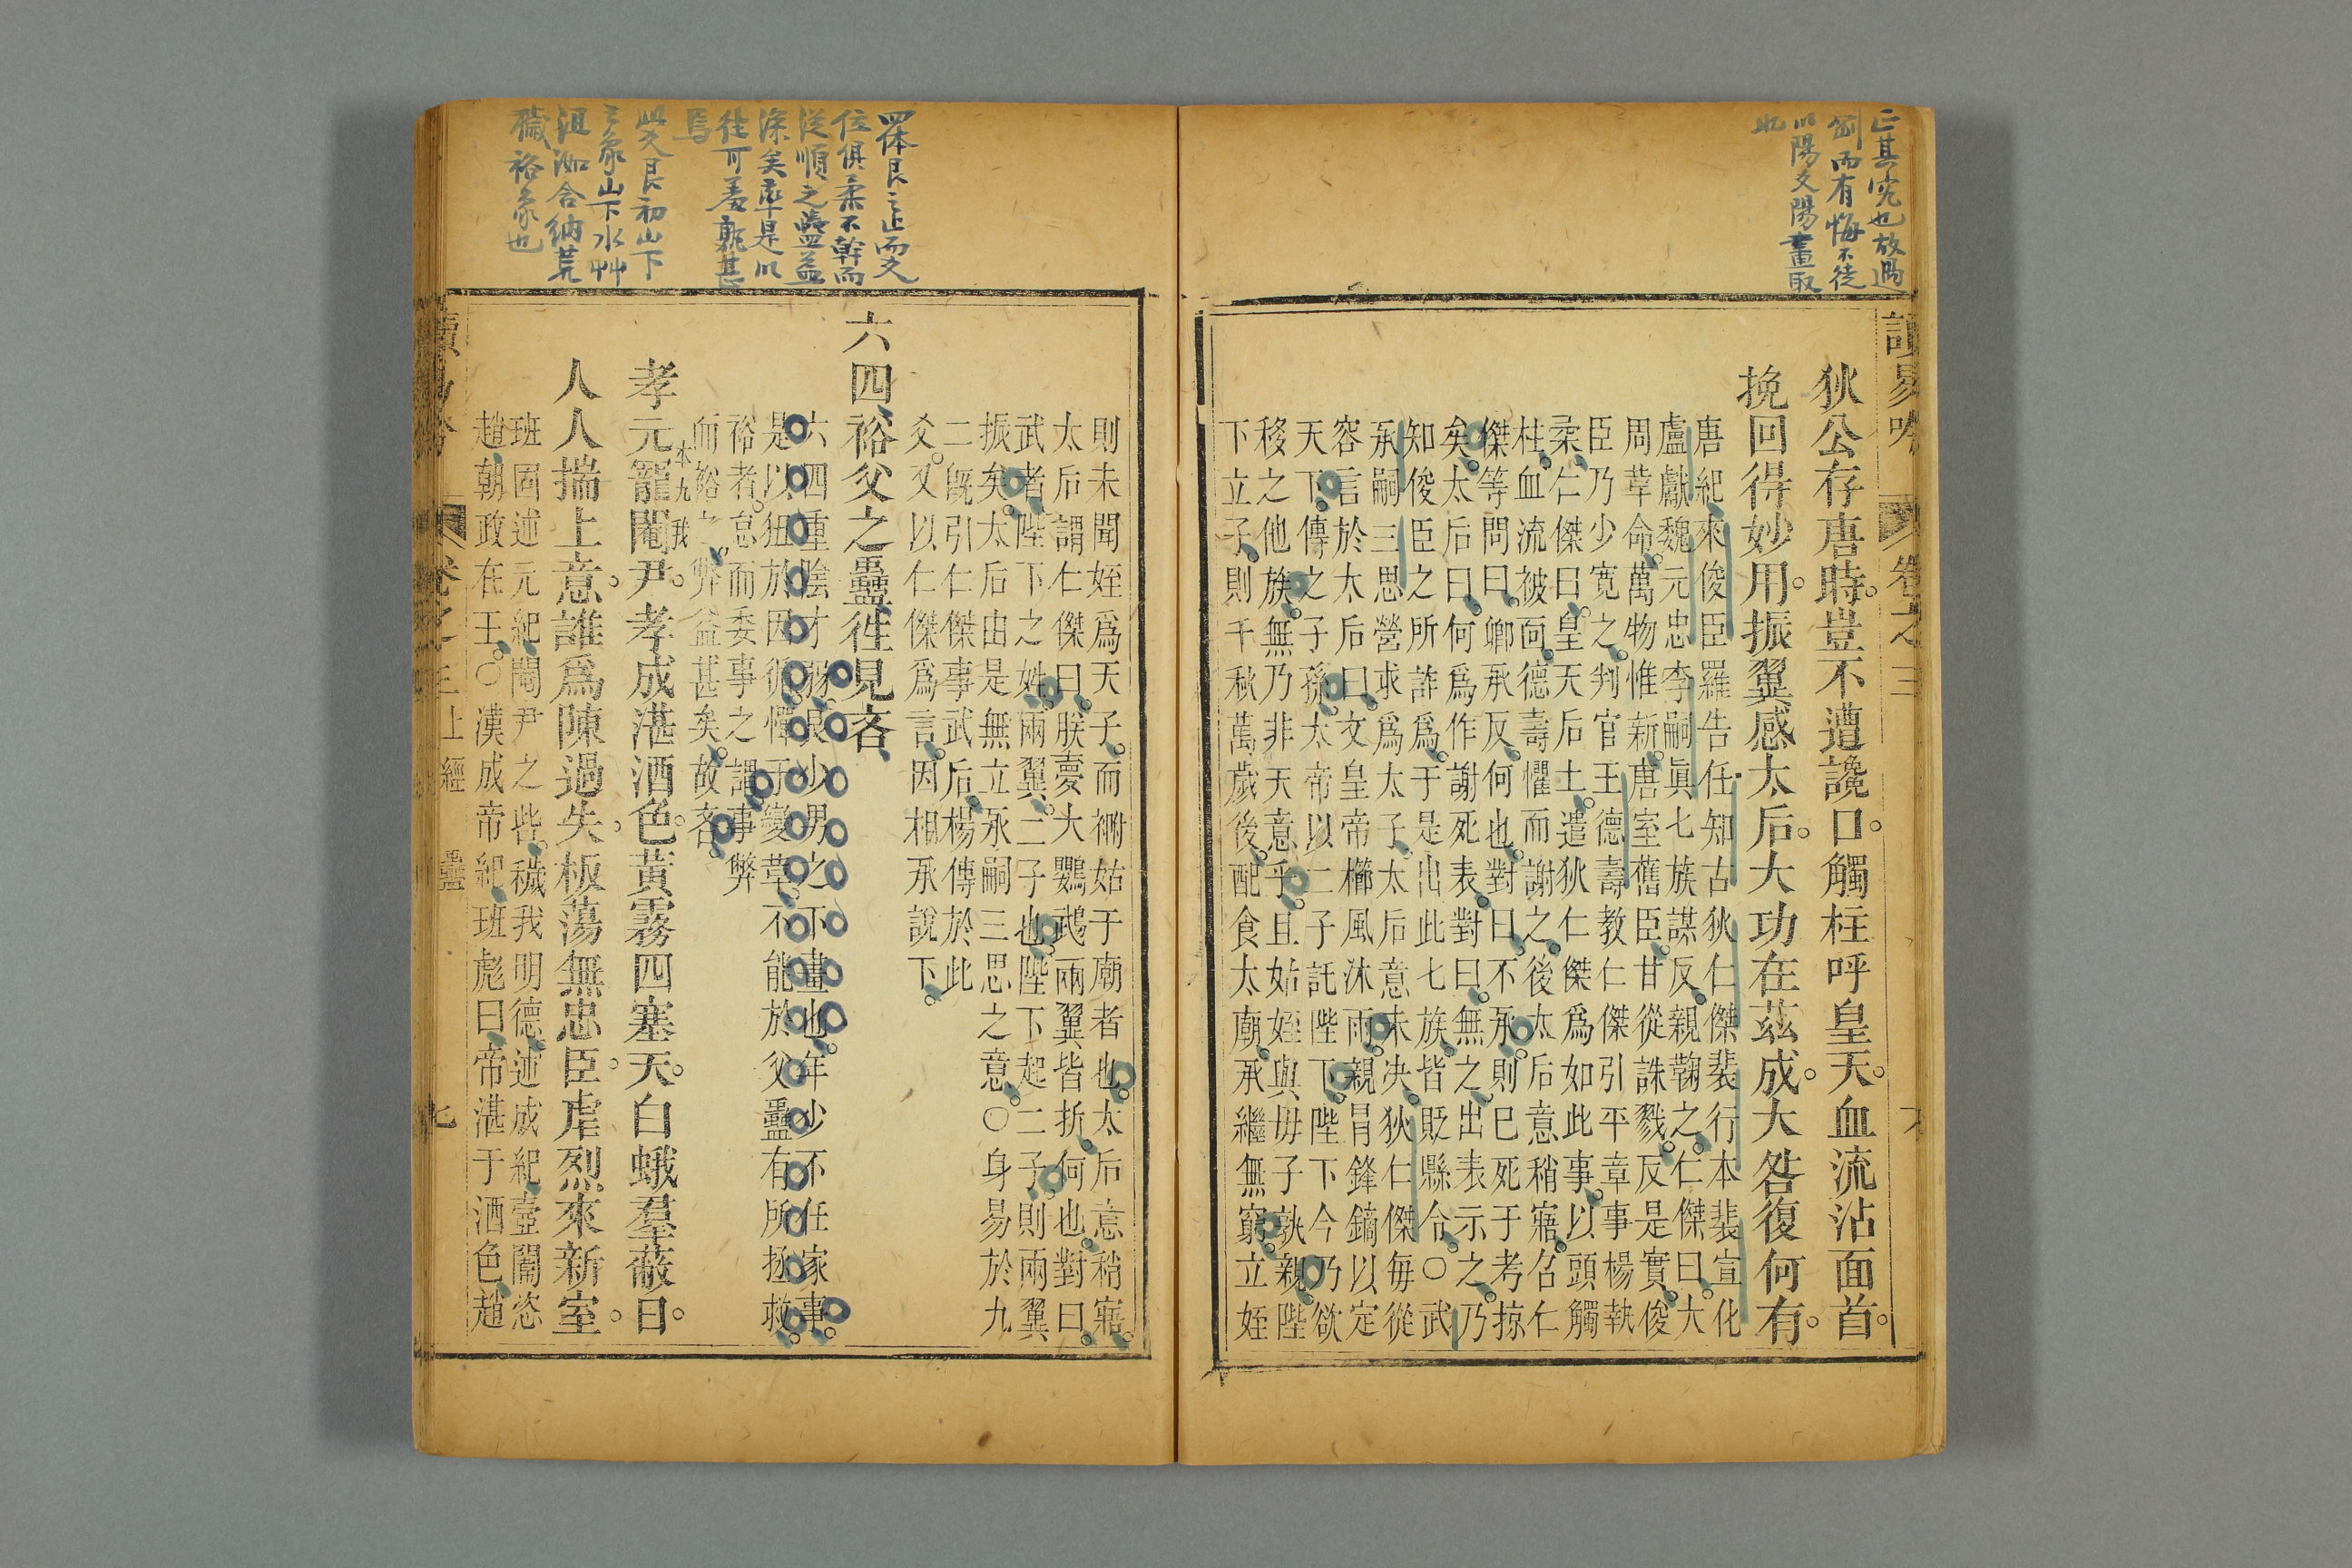 正其究也故過
剛而有悔不徒
以陽爻陽畫取
此
讀易吟 卷之三 六
狄公存唐時豈不遭讒口觸柱呼皇天血流沾面首
挽回得妙用振翼感太后大功在茲成大咎復何有
唐紀來俊臣羅告任知古狄仁傑裴行本裴宣化
盧獻魏元忠李嗣眞七族謀反親鞫之仁傑曰大
周革命萬物惟新唐室舊臣甘從誅戮反是實俊
臣乃少寛之判官王德壽教仁傑引平章事楊執
柔仁傑曰皇天后土遣狄仁傑爲如此事以頭觸
柱血流被面德壽懼而謝之後太后意稍寤召仁
傑等問曰卿承反何也對曰不承則已死于考掠
矣太后曰何爲作謝死表對曰無之出表示之乃
知俊臣之所詐爲于是出此七族皆貶縣令○武
承嗣三思營求爲太子太后意未决狄仁傑每從
容言於太后曰文皇帝櫛風沐雨親冐鋒鏑以定
天下傳之子孫太帝以二子託陛下陛下今乃欲
移之他族無乃非天意乎且姑姪與母子孰親陛
下立子則千秋萬歲後配食太廟承繼無窮立姪
則未聞姪爲天子而祔姑于廟者也太后意稍寤
太后謂仁傑曰朕夢大鸚鵡兩翼皆折何也對曰
武者陛下之姓兩翼二子也陛下起二子則兩翼
振矣太后由是無立承嗣三思之意○身易於九
二旣引仁傑事武后楊傳於此
爻又以仁傑爲言因相承說下
四体艮之止而爻
位俱柔不幹而
從順之蠱益
深矣率是以
往可羞孰甚
焉
此爻艮初山下
之象山下水艸
沮洳合納荒
穢裕象也
六四裕父之蠱徃見吝
六四重陰才弱艮少男之下畫也年少不任家事
是以狃於因循憚于變革不能於父蠱有所拯救
裕者怠而委事之謂事弊
而裕之弊益甚矣故吝
本九 我
孝元寵閹尹孝成湛酒色黃霧四塞天白蛾羣蔽日
人人揣上意誰爲陳過失板蕩無忠臣虐烈來新室
班固述元紀閹尹之呰穢我明德述成紀壼闈恣
趙朝政在王○漢成帝紀班彪曰帝湛于酒色趙
卷之三 上經 蠱 七